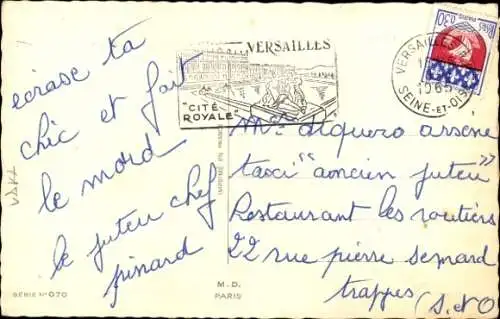 écrase ta
chic et fait
le mord
le juteu chef
pinard
VERSAILLES
"CITÉ
ROYALE"
VERSAILLES
1965
SEINE-ET-OISE
0,30
PARIS
Mr alquero arsène
taxi "ancien juteu"
Restaurant les routiers
22 rue pierre semard
trappes (S.et O)
SÉRIE N° 070
M.D.
PARIS